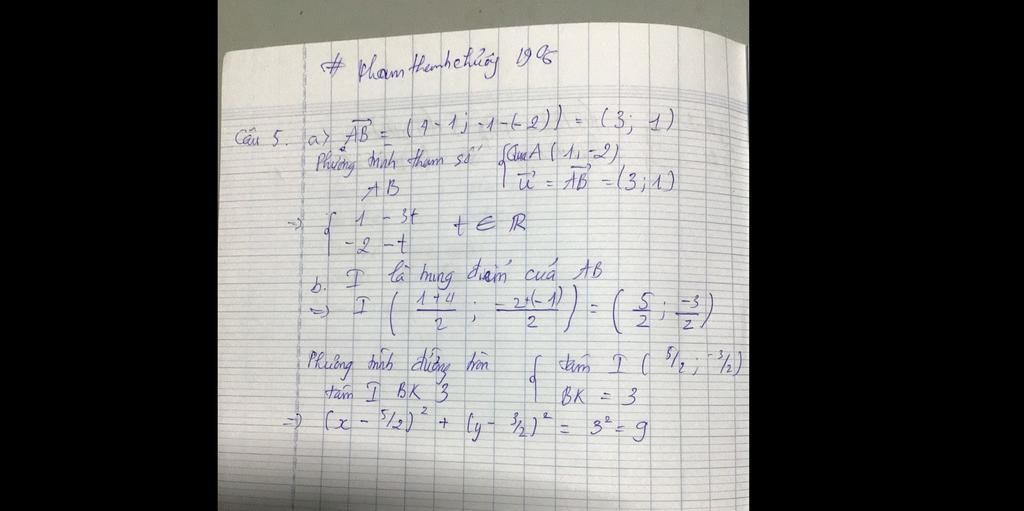 # phamthanhchuong 1996
Câu 5. a) AB = (4-1; -1-(-2)) = (3; 1)
Phương trình tham số { Qua A (1; -2)
AB u = AB = (3; 1)
=> { 1 - 3t t ∈ R
-2 - t
b. I là trung điểm của AB
=> I ( 1+4/2 ; -2+(-1)/2 ) = ( 5/2 ; -3/2 )
Phương trình đường tròn { tâm I ( 5/2 ; -3/2)
tâm I BK 3 BK = 3
=> (x - 5/2)² + (y - 3/2)² = 3² = 9